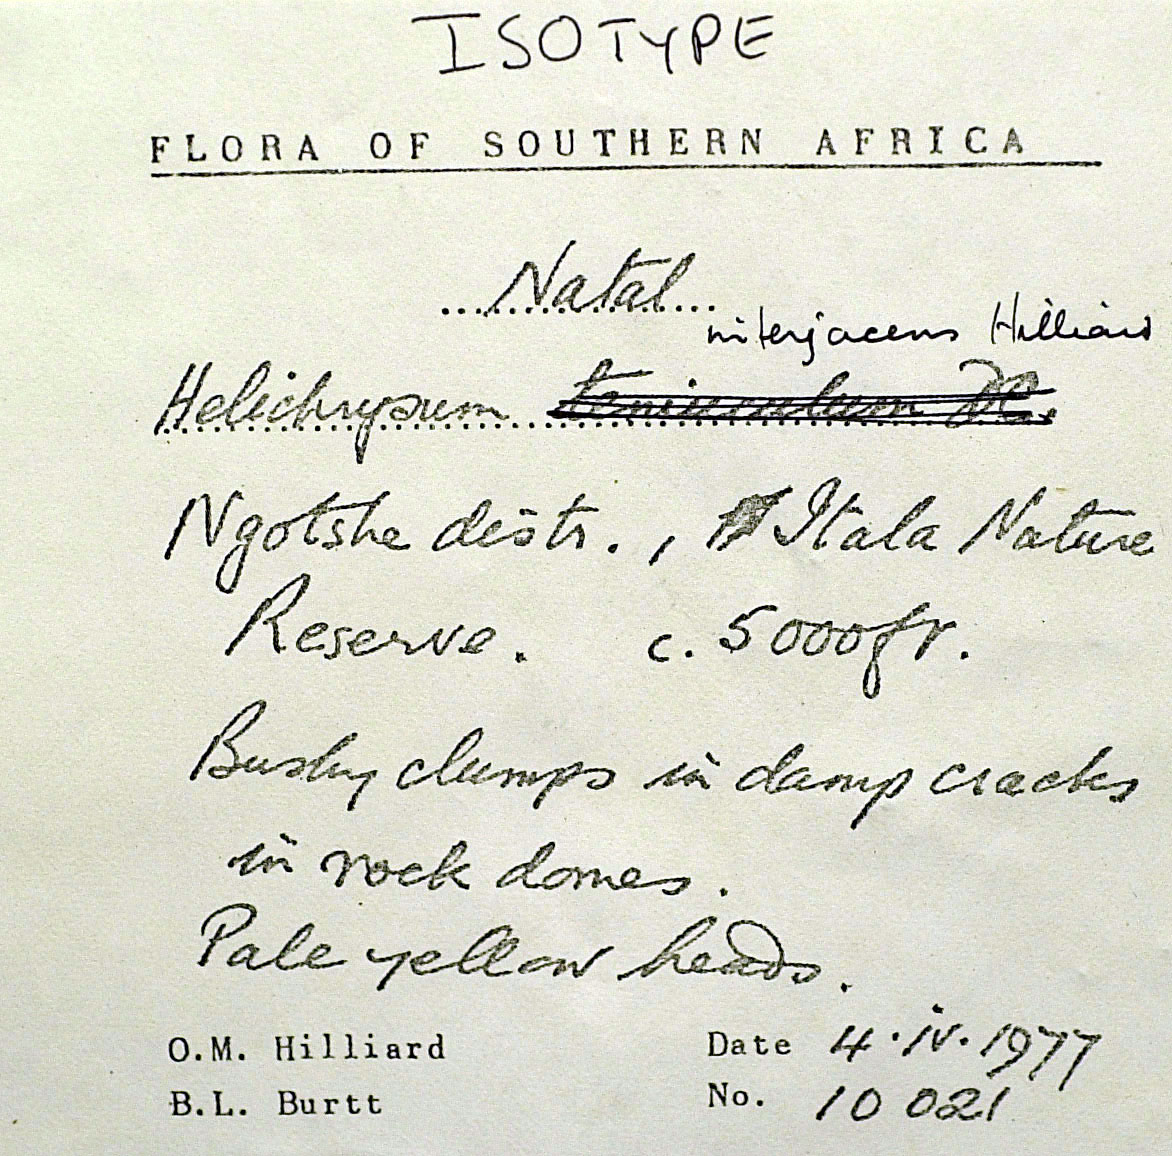 ISOTYPE
FLORA OF SOUTHERN AFRICA
...Natal...
interjacens Hilliard
Helichrysum tenuiculum DC.
Ngotshe distr. , Itala Nature
Reserve. c. 5000ft.
Bushy clumps in damp cracks
in rock domes.
Pale yellow heads.
O.M. Hilliard Date 4.iv.1977
B.L. Burtt No. 10 021